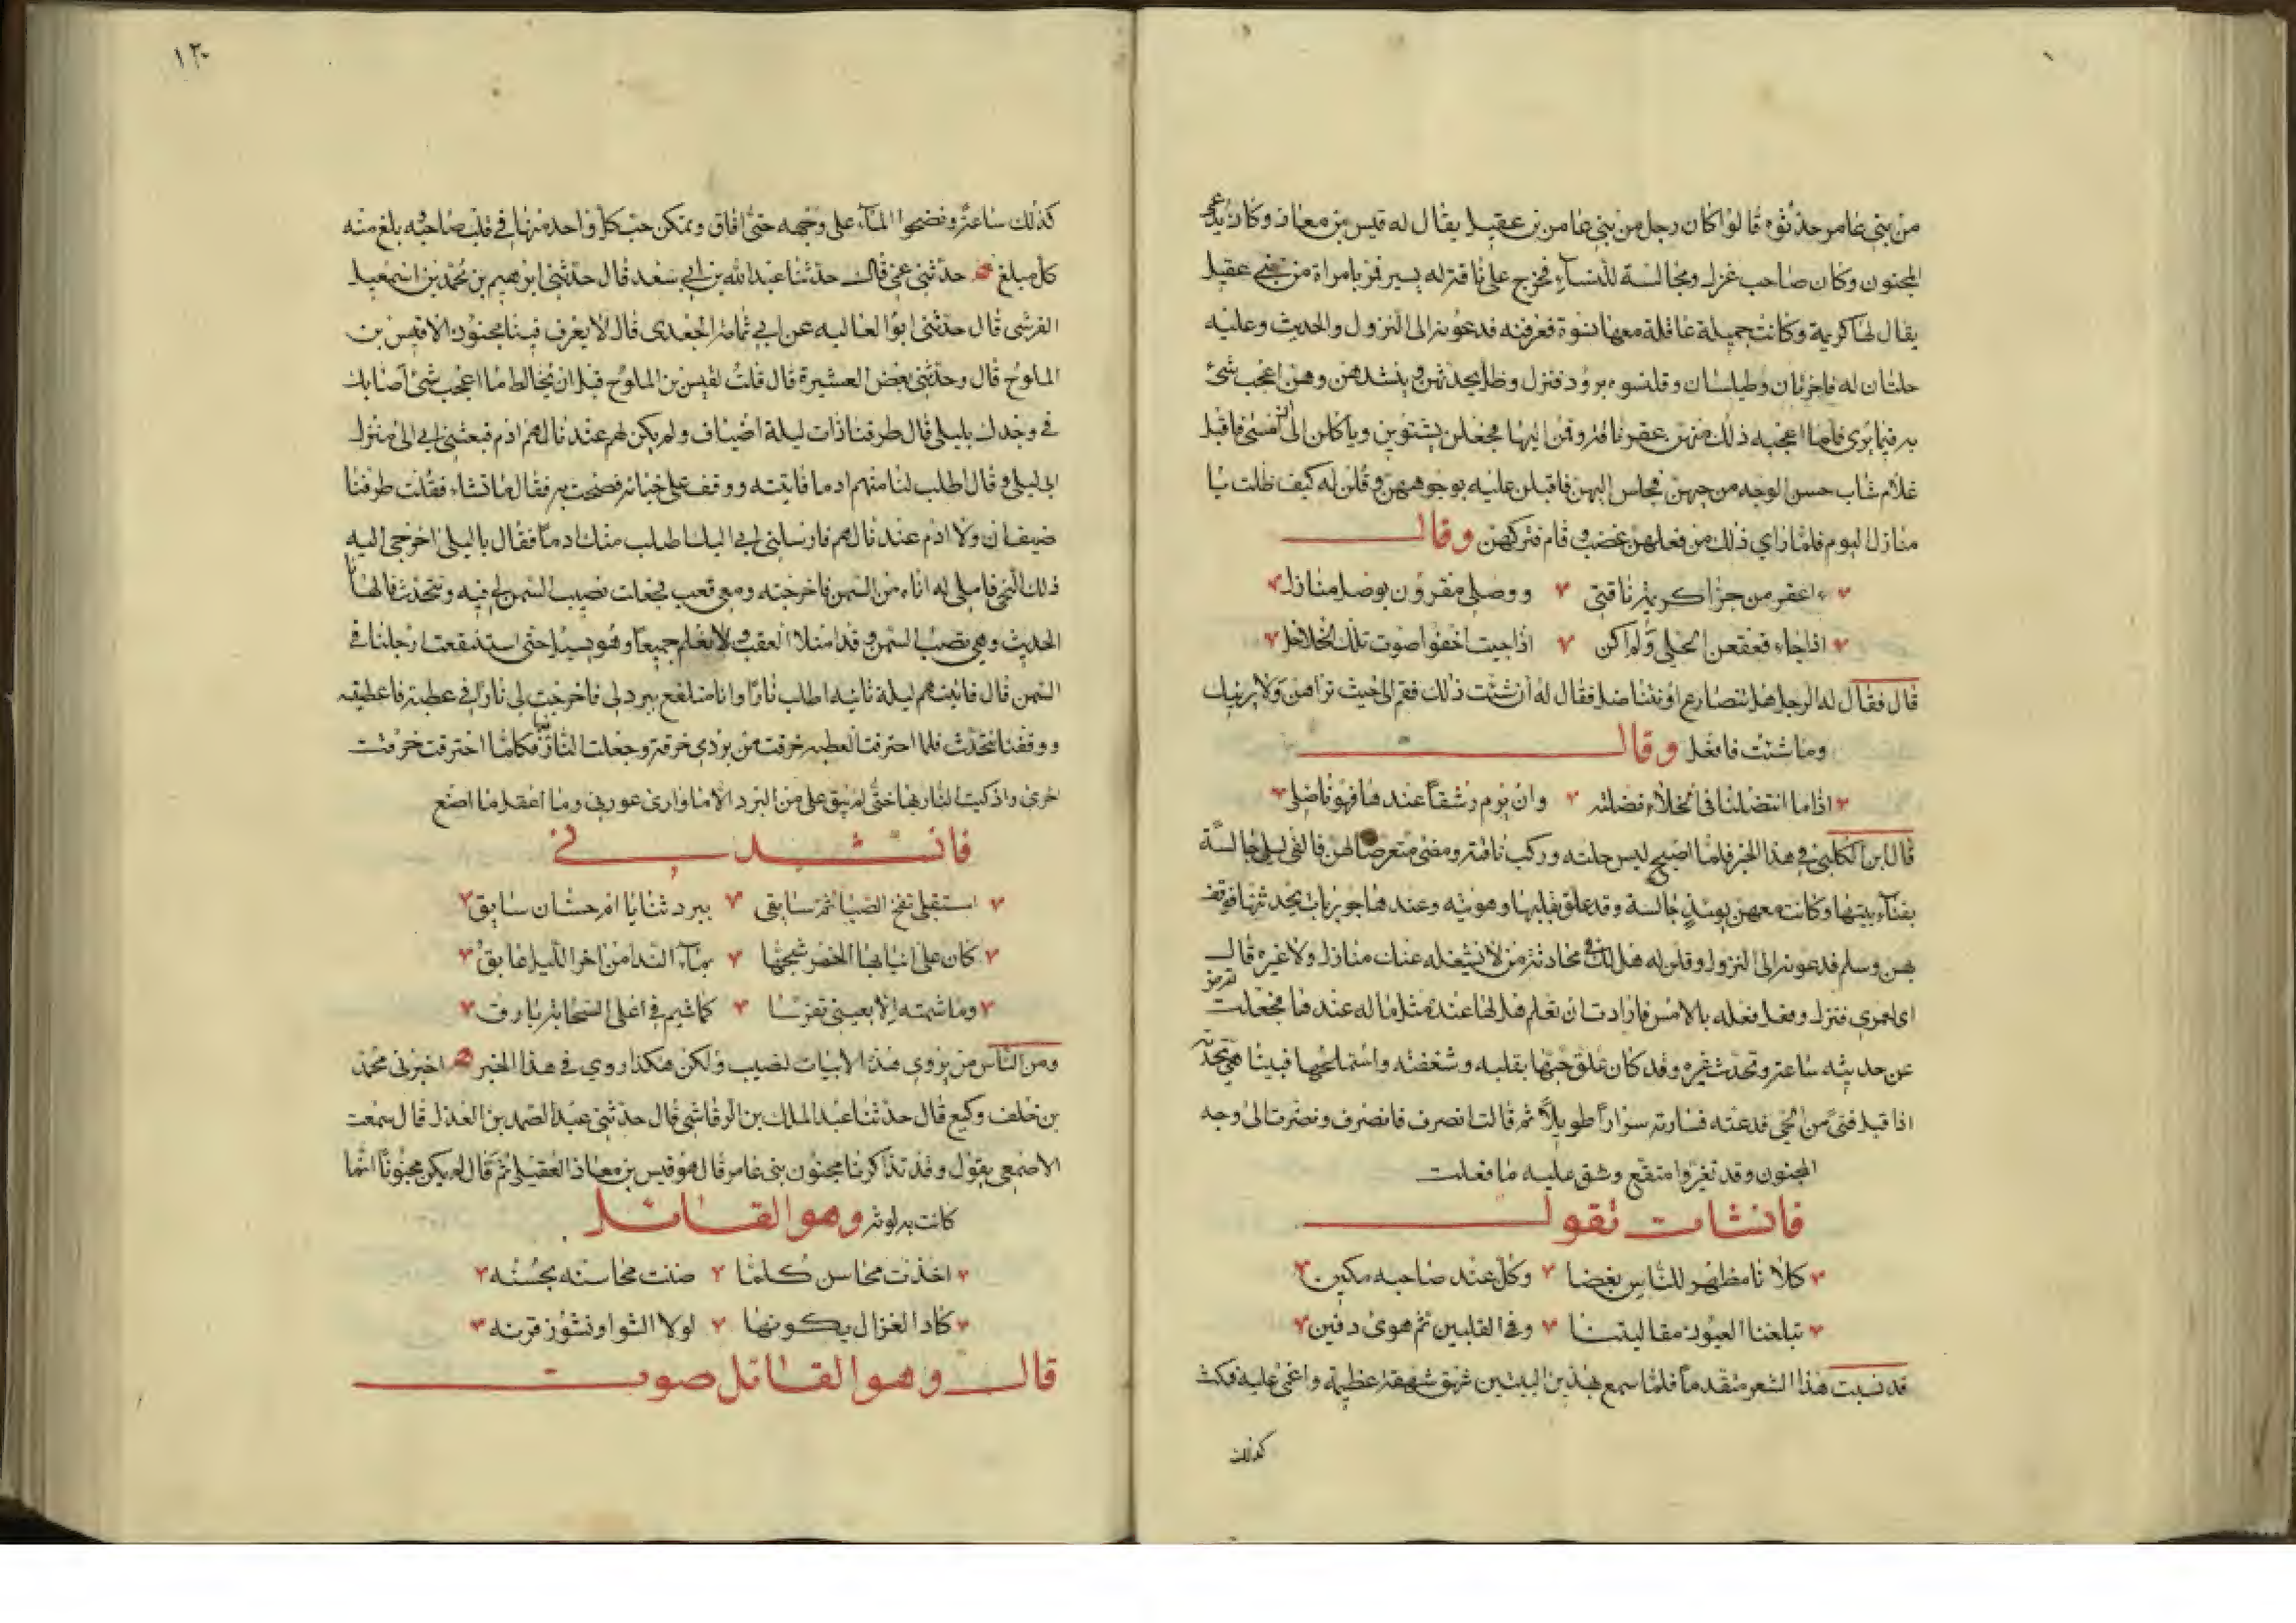 من بني عامر حدثوه قالوا كان رجل من بني عامر بن عقيل يقال له قيس بن معاذ وكان يدعى
المجنون وكان صاحب غزل ومجالسة للنسآء فخرج على ناقة له يسير فمر بامراة من بني عقيل
يقال لها كريمة وكانت جميلة عاقلة معها نسوة فعرفنه فدعونه الى النزول والحديث وعليه
حلتان له فاخرتان وطيلسان وقلنسوه برود فنزل وظل يحدثهن وينشدهن وهن اعجب شئ
به فيما يرى فلما اعجبه ذلك منهن عقر ناقته وقمن اليها فجعلن يشتوين وياكلن الى ان امسى فاقبل
غلام شاب حسن الوجه من حيهن فجلس اليهن فاقبلن عليه بوجوههن وقلن له كيف ظلت يا
منازل اليوم فلما راي ذلك من فعلهن غضب وقام فتركهن وقال
اعقر من جرا كريمة ناقتي ووصلي مفرون بوصل منازل
اذا جاء قعقعن الحلي ولم اكن اذا جيت اخفوا صوت تلك الخلاخل
قال فقال له الرجل هل نتصارع او نتناضل فقال له ان شئت ذلك فقم الى حيث تراهن ولا يرينك
وما شئت فافعل وقال
اذا ما انتضلنا في الخلاء فضلته وان يرم رشقا عندها فهو ناضلي
قال ابن الكلبي في هذا الخبر فلما اصبح لبس حلته وركب ناقته ومضى متعرضا لهن فالفى ليلى جالسة
بفناء بيتها وكانت معهن يومئذ جالسة وقد علق بقلبها وهويته وعندها جويريات يحدثنها فوقف
بهن وسلم فدعونه الى النزول وقلن له هل لك في محادثة من لا يشغله عنك منازل ولا غيره قال
اي لعمري فنزل وفعل فعله بالامس فارادت ان تعلم هل لها عنده مثل ما له عندها فجعلت تعرض
عن حديثه ساعة وتحدث غيره وقد كان علق حبها بقلبه وشغفته واستملحها فبينا هي تحدثه
اذ اقبل فتى من الحي فدعته فسارته سرارا طويلا ثم قالت انصرف فانصرف ونضرت الى وجه
المجنون وقد تغير وامتقع وشق عليه ما فعلت
فانشات تقول
كلانا مظهر للناس بغضا وكل عند صاحبه مكين
تبلغنا العيون مقاليتنا وفي القلبين ثم هوى دفين
قد نسبت هذا الشعر متقدما فلما سمع هذين البيتين شهق شهقة عظيمة واغمى عليه فمكث
كذلك
١٢٠
كذلك ساعة ونضحوا المآء على وجهه حتى افاق وتمكن حب كل واحد منهما في قلب صاحبه بلغ منه
كل مبلغ حدثني عمي قال حدثنا عبد الله بن ابي سعد قال حدثني ابرهيم بن محمد بن اسمعيل
القرشي قال حدثني ابو العاليه عن ابي ثمامة الجعدي قال لا يعرف فينا مجنون الا قيس بن
الملوح قال وحدثني بعض العشيرة قال قلت لقيس بن الملوح قبل ان يخالط ما اعجب شئ اصابك
في وجدك بليلى قال طرقنا ذات ليلة اضياف ولم يكن لهم عندنا لهم ادم فبعثني ابي الى منزل
ابي ليلى وقال اطلب لنا منهم ادما فاتيته ووقف على خبائه فصحت به فقال ما تشاء فقلت طرقنا
ضيفان ولا ادم عندنا لهم فارسلني ابي اليك اطلب منك ادما فقال يا ليلى اخرجي اليه
ذلك النحي فاملى له اناءه من السمن فاخرجته ومعي قعب فجعلت تصيب السمن لي فيه ونتحدث فالهانا
الحديث وهي تصب السمن وقد امتلا القعب ولا نعلم جميعا وهو يسيل حتى استنقعت ارجلنا في
السمن قال فاتيتهم ليلة ثانيه اطلب نارا وانا متلفع ببرد لي فاخرجت لي نارا في عطبة فاعطيتها
ووقفنا نتحدث فلما احترقت العطبه خرقت من بردي خرقة وجعلت النار فيها فكلما احترقت خرقت
اخرى واذكيت النار بها حتى لم يبق علي من البرد الا ما وارى عورتي وما اعقل ما اصنع
فانشدني
استقبلي نفح الصبا ثم سابقي ببرد ثنايا ام حسان سابق
كان على انيابها الخمر شجها بمآء الندا من اخر الليل غابق
وما شمته الا بعيني تفرسا كما شيم في اعلى السحابة بارق
ومن الناس من يروي هذه الابيات لنصيب ولكن هكذا روي في هذا الخبر اخبرني محمد
بن خلف وكيع قال حدثنا عبد الملك بن الرقاشي قال حدثني عبد الصمد بن المعذل قال سمعت
الاصمعي يقول وقد تذاكرنا مجنون بني عامر قال هو قيس بن معاذ العقيلي ثم قال لم يكن مجنونا انما
كانت به لوثة وهو القائل
اخذت محاسن كلما ضنت محاسنه بحسنه
كاد الغزال يكونها لولا الشوا ونشوز قرنه
قال وهو القائل صوت